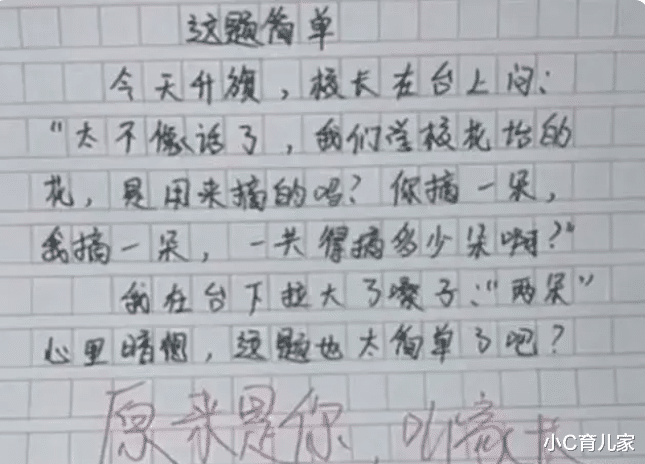 这题简单
今天升旗，校长在台上问：
“太不像话了，我们学校花坛的
花，是用来摘的吗？你摘一朵，
我摘一朵，一共得摘多少朵啊？”
我在台下拉大了嗓子：“两朵”
心里暗想，这题也太简单了吧？
原来是你，叫家长
小C育儿家